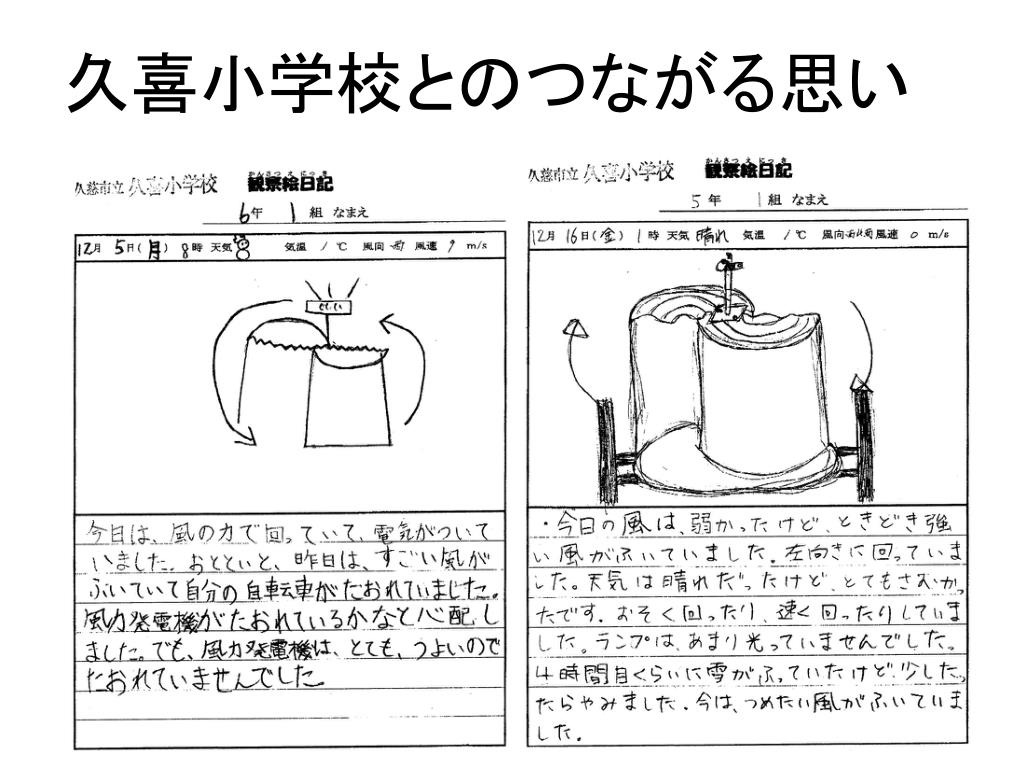 久喜小学校とのつながる思い
久慈市立 久喜小学校
かんさつ え にっき
観察絵日記
6年 1組 なまえ
12月 5日(月) 8時 天気 気温 1℃ 風向 南 風速 9 m/s
今日は、風の力で回っていて、電気がついて
いました。おとといと、昨日は、すごい風が
ふいていて自分の自転車がたおれていました。
風力発電機がたおれているかなと心配し
ました。でも、風力発電機は、とても、つよいので
たおれていませんでした。
久慈市立 久喜小学校
かんさつ え にっき
観察絵日記
5年 1組 なまえ
12月 16日(金) 1時 天気 晴れ 気温 1℃ 風向 風速 0 m/s
・今日の風は、弱かったけど、ときどき強
い風がふいていました。左向きに回っていま
した。天気は晴れだったけど、とてもさむかっ
たです。おそく回ったり、速く回ったりしていま
した。ランプは、あまり光っていませんでした。
4時間目くらいに雪がふっていたけど、少したっ
たらやみました。今は、つめたい風がふいていま
した。